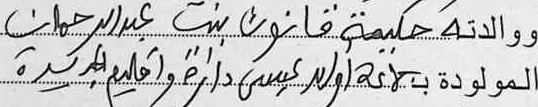 ووالدته حكيمة قانون بنت عبد الرحمان
المولودة ب أولاد عيسى دائرة واقليم الجديدة